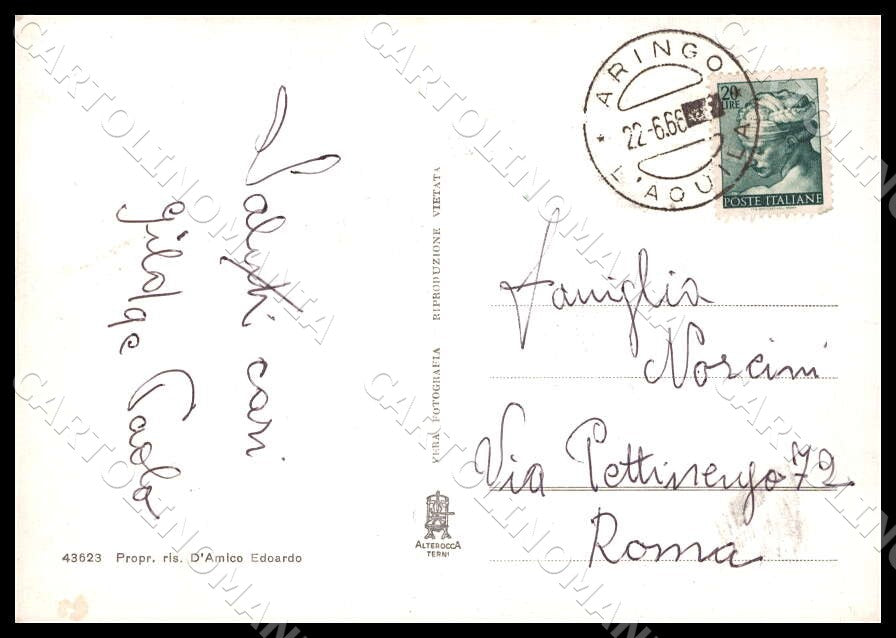 Saluti cari
Paola
VERA FOTOGRAFIA RIPRODUZIONE VIETATA
43623 Propr. ris. D'Amico Edoardo
ALTEROCCA
TERNI
ARINGO
22-6.66
L'AQUILA
20
LIRE
POSTE ITALIANE
Famiglia
Norcini
Via Pettinengo 72
Roma
CARTOLINOMANIA